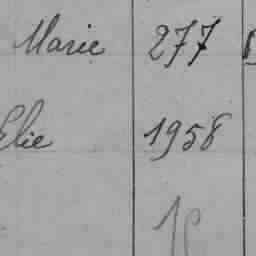 Marie 277
Elie 1958